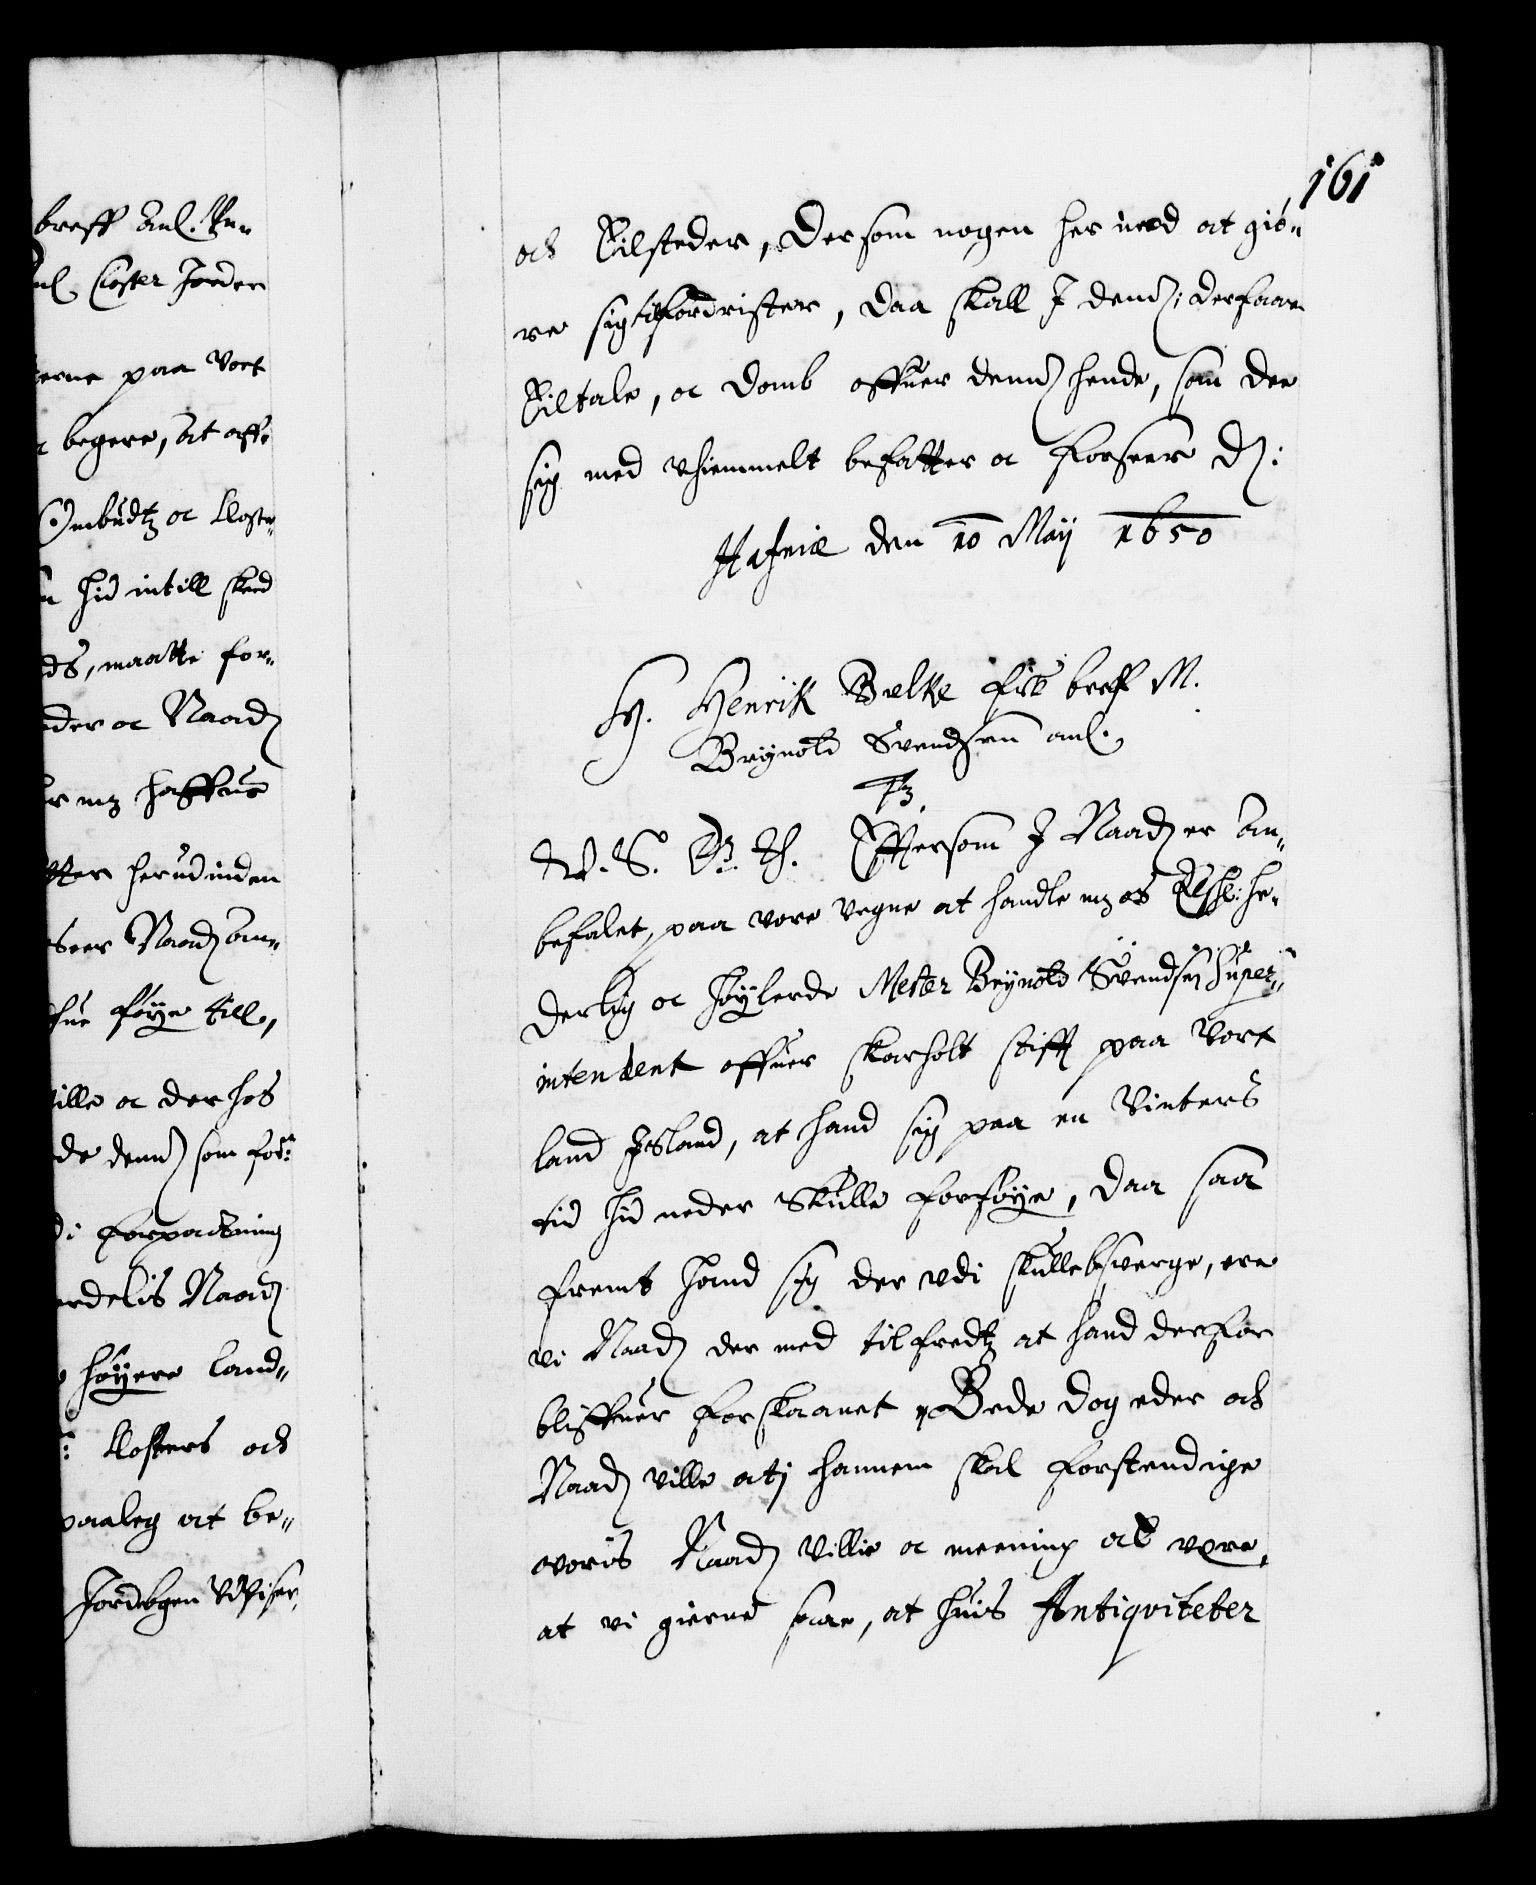 breff anl. Kn-
nl. Closter Jorder
erne paa Vort
begere, at off-
Ombudtz oc Closte-
n hid intill skeed
ds, maatte for-
der oc Naad.
r mz haffue
tter herudinden
seer Naad. an-
hue føye till,
ville oc der hos
de dend som for:
di forpactning
erdelis Naad.
høyere land-
Closters och
paaleg at be-
Jordebogen Udviser,
161
och Tilsteder, Dersom nogen her imod at giø-
re sig tilfordrister, daa skall I dend: derfaar
Tiltale, oc Domb offuer dend hende, som der
sig med uhiemmelt befatter oc forseer D:
Hafniæ den 10 Maij 1650
H. Henrik Bielke fik breff M.
Brynold Svendsen anl.
F3.
W. S. G. T. Effterson I Naad. er an-
befalet, paa vore vegne at handle mz os Elskl: he-
derlig oc høylerde Mester Brynold Svendsen Super-
intendent offuer Skarholt stifft paa Vort
land Jsland, at hand sig paa en Vinters
tid hid neder skulle forføye, daa saa
fremt hand sig der udi skulle besverge, ere
vi Naad. der med tilfredtz at hand derfor
bliffuer forskaanet, Bede dog eder och
Naad. ville at j hannem skal forstendige
voris Naad. Villie oc meening at være,
at vi gierne saae, at huis Antiqviteter